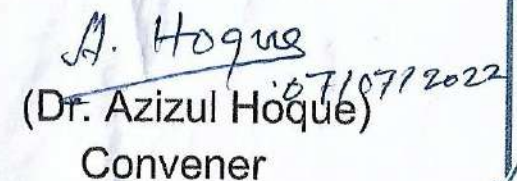 A. Hoque
07/07/2022
(Dr. Azizul Hoque)
Convener